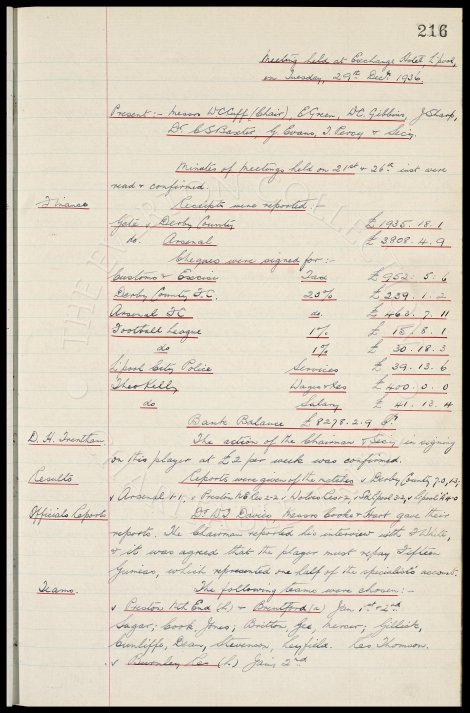 216
Meeting held at Exchange Hotel, L'pool,
on Tuesday, 29th Decr. 1936.
Present :- Messrs W.C. Cuff (Chair), E. Green, D.C. Gibbins, J. Sharp,
Dr. C.S. Baxter, G. Evans, T. Percy & Secy.
Minutes of meetings held on 21st & 26th inst were
read & confirmed.
Finance Receipts were reported :-
Gate v Derby County £ 1935. 18. 1
do. Arsenal £ 3808. 4. 9
Cheques were signed for :-
Customs & Excise Tax £ 952. 5. 6
Derby County F.C. 20% £ 239. 1. 2
Arsenal FC do. £ 463. 7. 11
Football League 1% £ 15. 8. 1
do 1% £ 30. 18. 3
L'pool City Police Services £ 39. 13. 6
Theo Kelly Wages & Exs £ 400. 0. 0
do Salary £ 41. 13. 4
Bank Balance £8278. 2. 9
D. H. Trentham The action of the Chairman & Secy in signing
on this player at £2 per week was confirmed.
Results Reports were given of the matches v Derby County 7.0,
v Arsenal 1.1, v Preston N.E. Res 2.2, v Wolves Res
Officials Reports Dr. W.J. Davies Messrs Cooke & Hoare gave their
reports. The Chairman reported his interview with T. White,
& it was agreed that the player must repay Fifteen
Guineas, which represented one half of the specialist's account.
Teams. The following teams were chosen :-
v Preston Nth End (h) & Brentford (a) Jan. 1st & 2nd
Sagar; Cook Jones; Britton Gee, Mercer; Gillick,
Cunliffe, Dean, Stevenson, Leyfield. Res Thomson.
v Burnley Res (h) Jan. 2nd